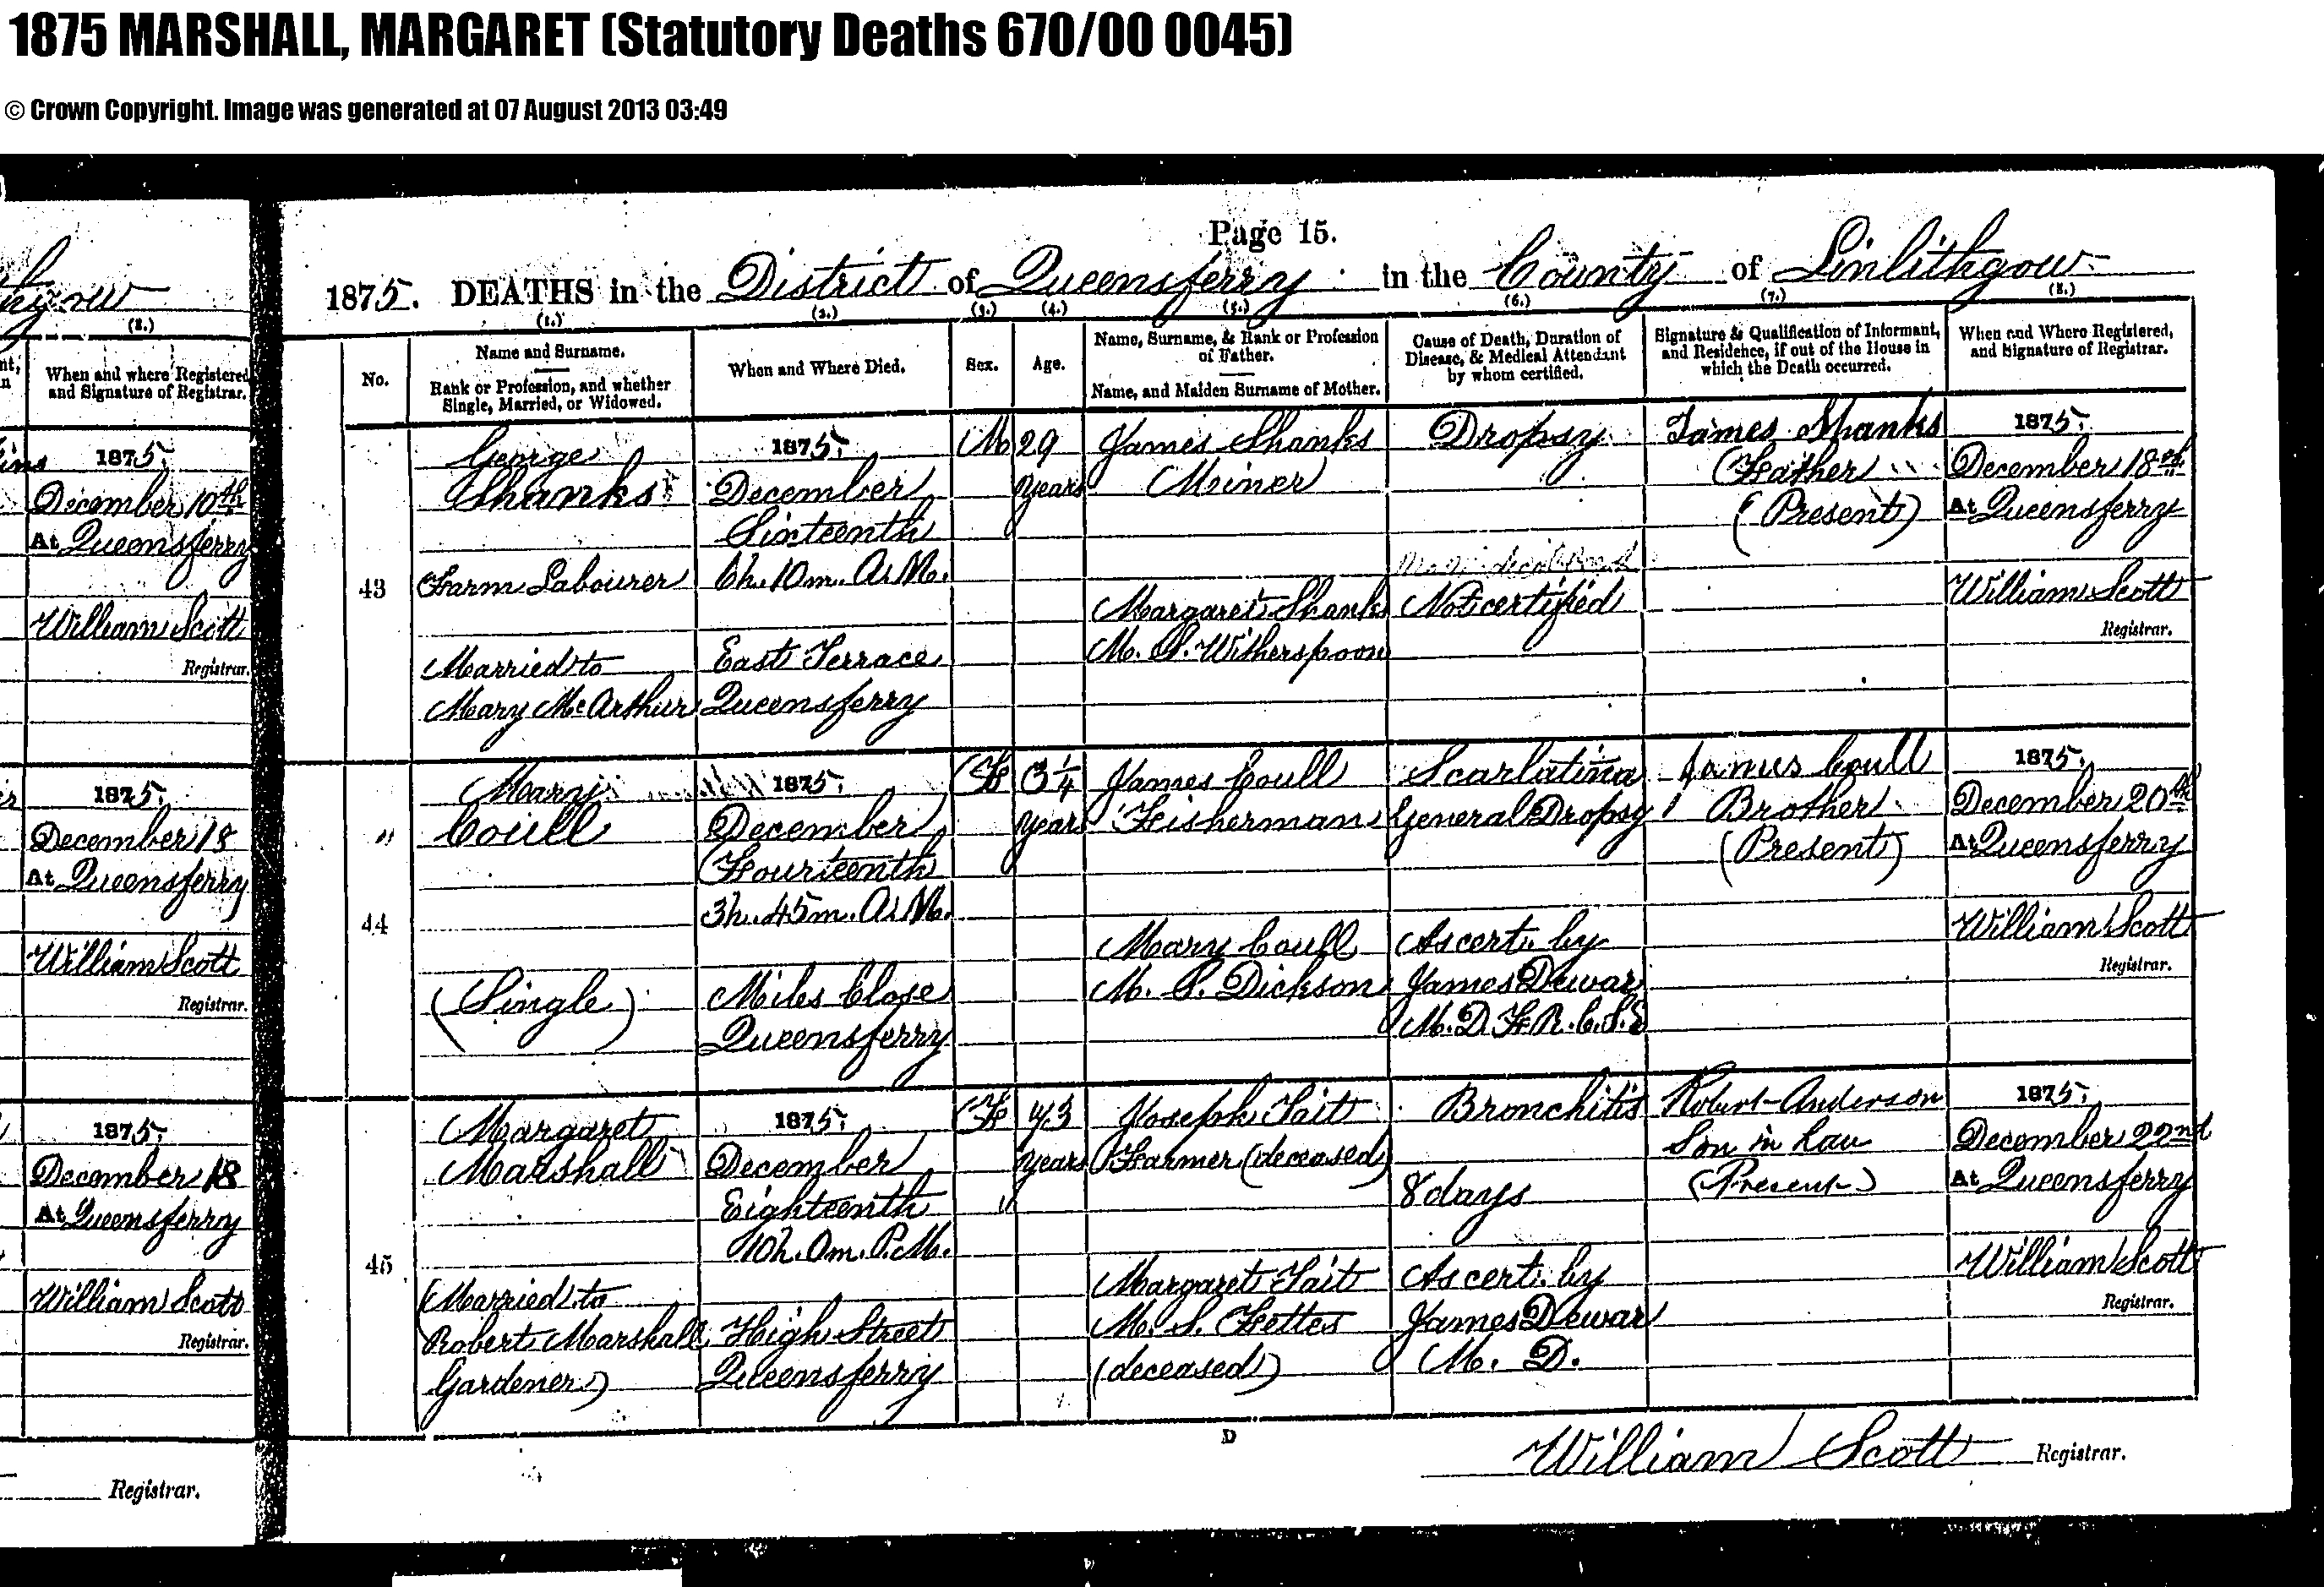 1875 MARSHALL, MARGARET (Statutory Deaths 670/00 0045)
© Crown Copyright. Image was generated at 07 August 2013 03:49
Page 15.
1875. DEATHS in the District of Queensferry in the County of Linlithgow
(1.) (2.) (3.) (4.) (5.) (6.) (7.) (8.)
No.
Name and Surname.
Rank or Profession, and whether
Single, Married, or Widowed.
When and Where Died.
Sex.
Age.
Name, Surname, & Rank or Profession
of Father.
Name, and Maiden Surname of Mother.
Cause of Death, Duration of
Disease, & Medical Attendant
by whom certified.
Signature & Qualification of Informant,
and Residence, if out of the House in
which the Death occurred.
When and Where Registered,
and Signature of Registrar.
43
George
Shanks
Farm Labourer
Married to
Mary McArthur
1875.
December
Sixteenth
6h. 10m. A.M.
East Terrace
Queensferry
M
29
years
James Shanks
Miner
Margaret Shanks
M. S. Witherspoon
Dropsy
Not certified
James Shanks
Father
(Present)
1875.
December 18th
At Queensferry
William Scott
Registrar.
44
Mary
Coull
(Single)
1875.
December
Fourteenth
3h. 45m. A.M.
Miles Close
Queensferry
F
3 1/4
years
James Coull
Fisherman
Mary Coull
M. S. Dickson
Scarlatina
General Dropsy
Ascert. by
James Dewar
M. D. F. R. C. S. E
James Coull
Brother
(Present)
1875.
December 20th
At Queensferry
William Scott
Registrar.
45
Margaret
Marshall
(Married to
Robert Marshall
Gardener)
1875.
December
Eighteenth
10h. 0m. P.M.
High Street
Queensferry
F
43
years
Joseph Tait
Farmer (deceased)
Margaret Tait
M. S. Fettes
(deceased)
Bronchitis
8 days
Ascert. by
James Dewar
M. D.
Robert Anderson
Son in Law
(Present)
1875.
December 22nd
At Queensferry
William Scott
Registrar.
D
William Scott Registrar.
(8.)
When and where Registered
and Signature of Registrar.
1875.
December 10th
At Queensferry
William Scott
Registrar.
1875.
December 18
At Queensferry
William Scott
Registrar.
1875.
December 18
At Queensferry
William Scott
Registrar.
Registrar.